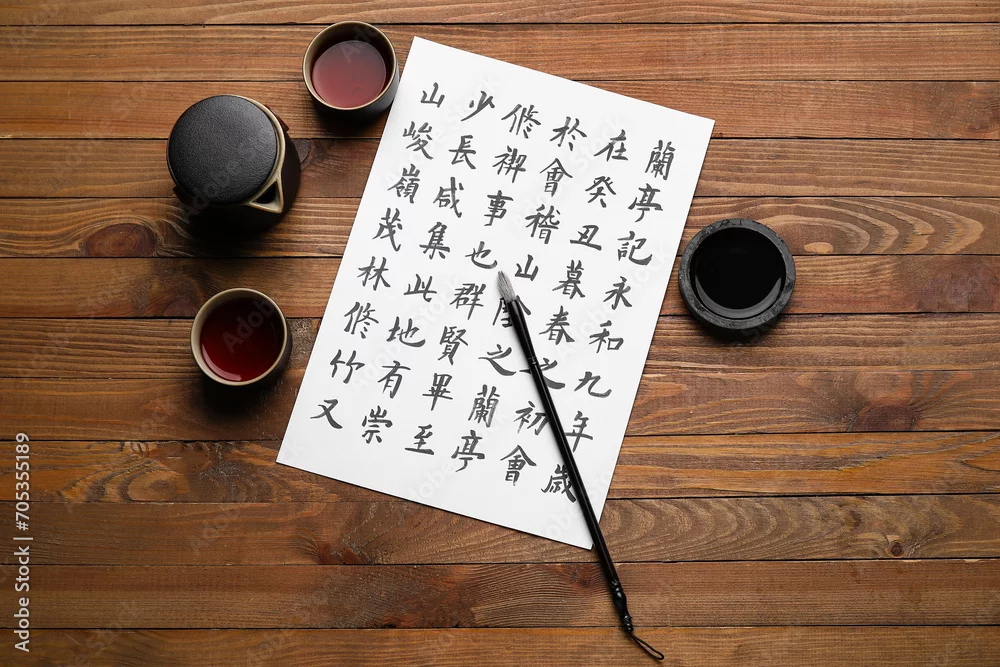 蘭亭記永和九年歲
在癸丑暮春之初會
於會稽山陰之蘭亭
修禊事也群賢畢至
少長咸集此地有崇
山峻嶺茂林修竹又
Adobe Stock | #705355189